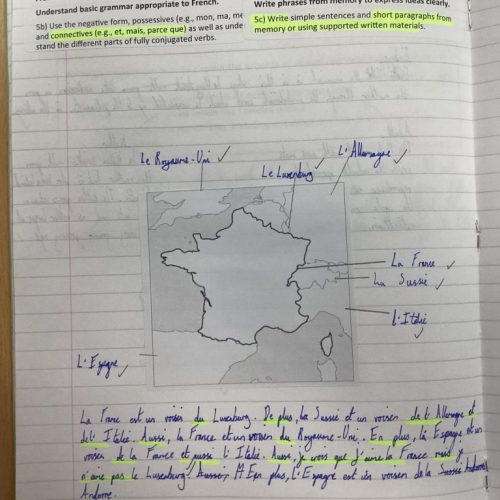 Understand basic grammar appropriate to French.
5b) Use the negative form, possessives (e.g., mon, ma, me
and connectives (e.g., et, mais, parce que) as well as unde
stand the different parts of fully conjugated verbs.
Write phrases from memory to express ideas clearly.
5c) Write simple sentences and short paragraphs from
memory or using supported written materials.
Le Royaume-Uni
Le Luxenburg
L'Allemagne
La France
La Sussie
L'Italie
L'Espagne
La France est un voisin du Luxenburg. De plus, la Sussie et un voisen de l'Allemagne et
de l'Italie. Aussi, la France et un voisen du Royaume-Uni. En plus, la Espagne et un
voisen de la France et aussi l'Italie. Aussi, je crois que j'aime la France mais je
n'aime pas le Luxenburg! En plus, L'Espagne est un voisen de la Sussie Andorre.
Andorre.